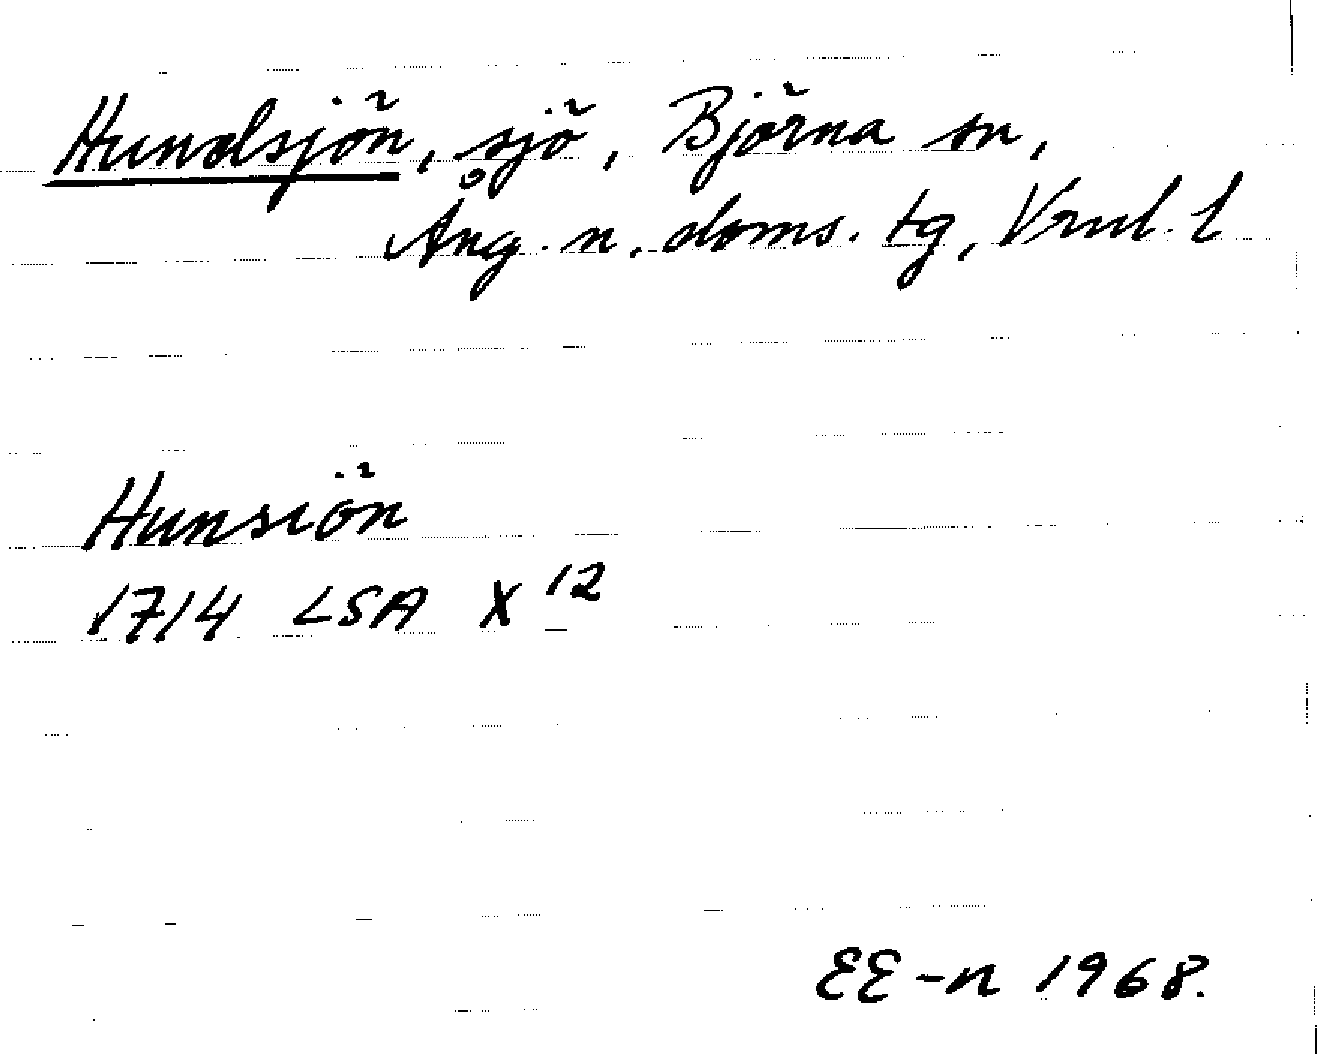 Hundsjön, sjö, Björna sn,
Ång. n. doms. tg, Vnnl. l
Hunsiön
1714 LSA X 12
EE-n 1968.